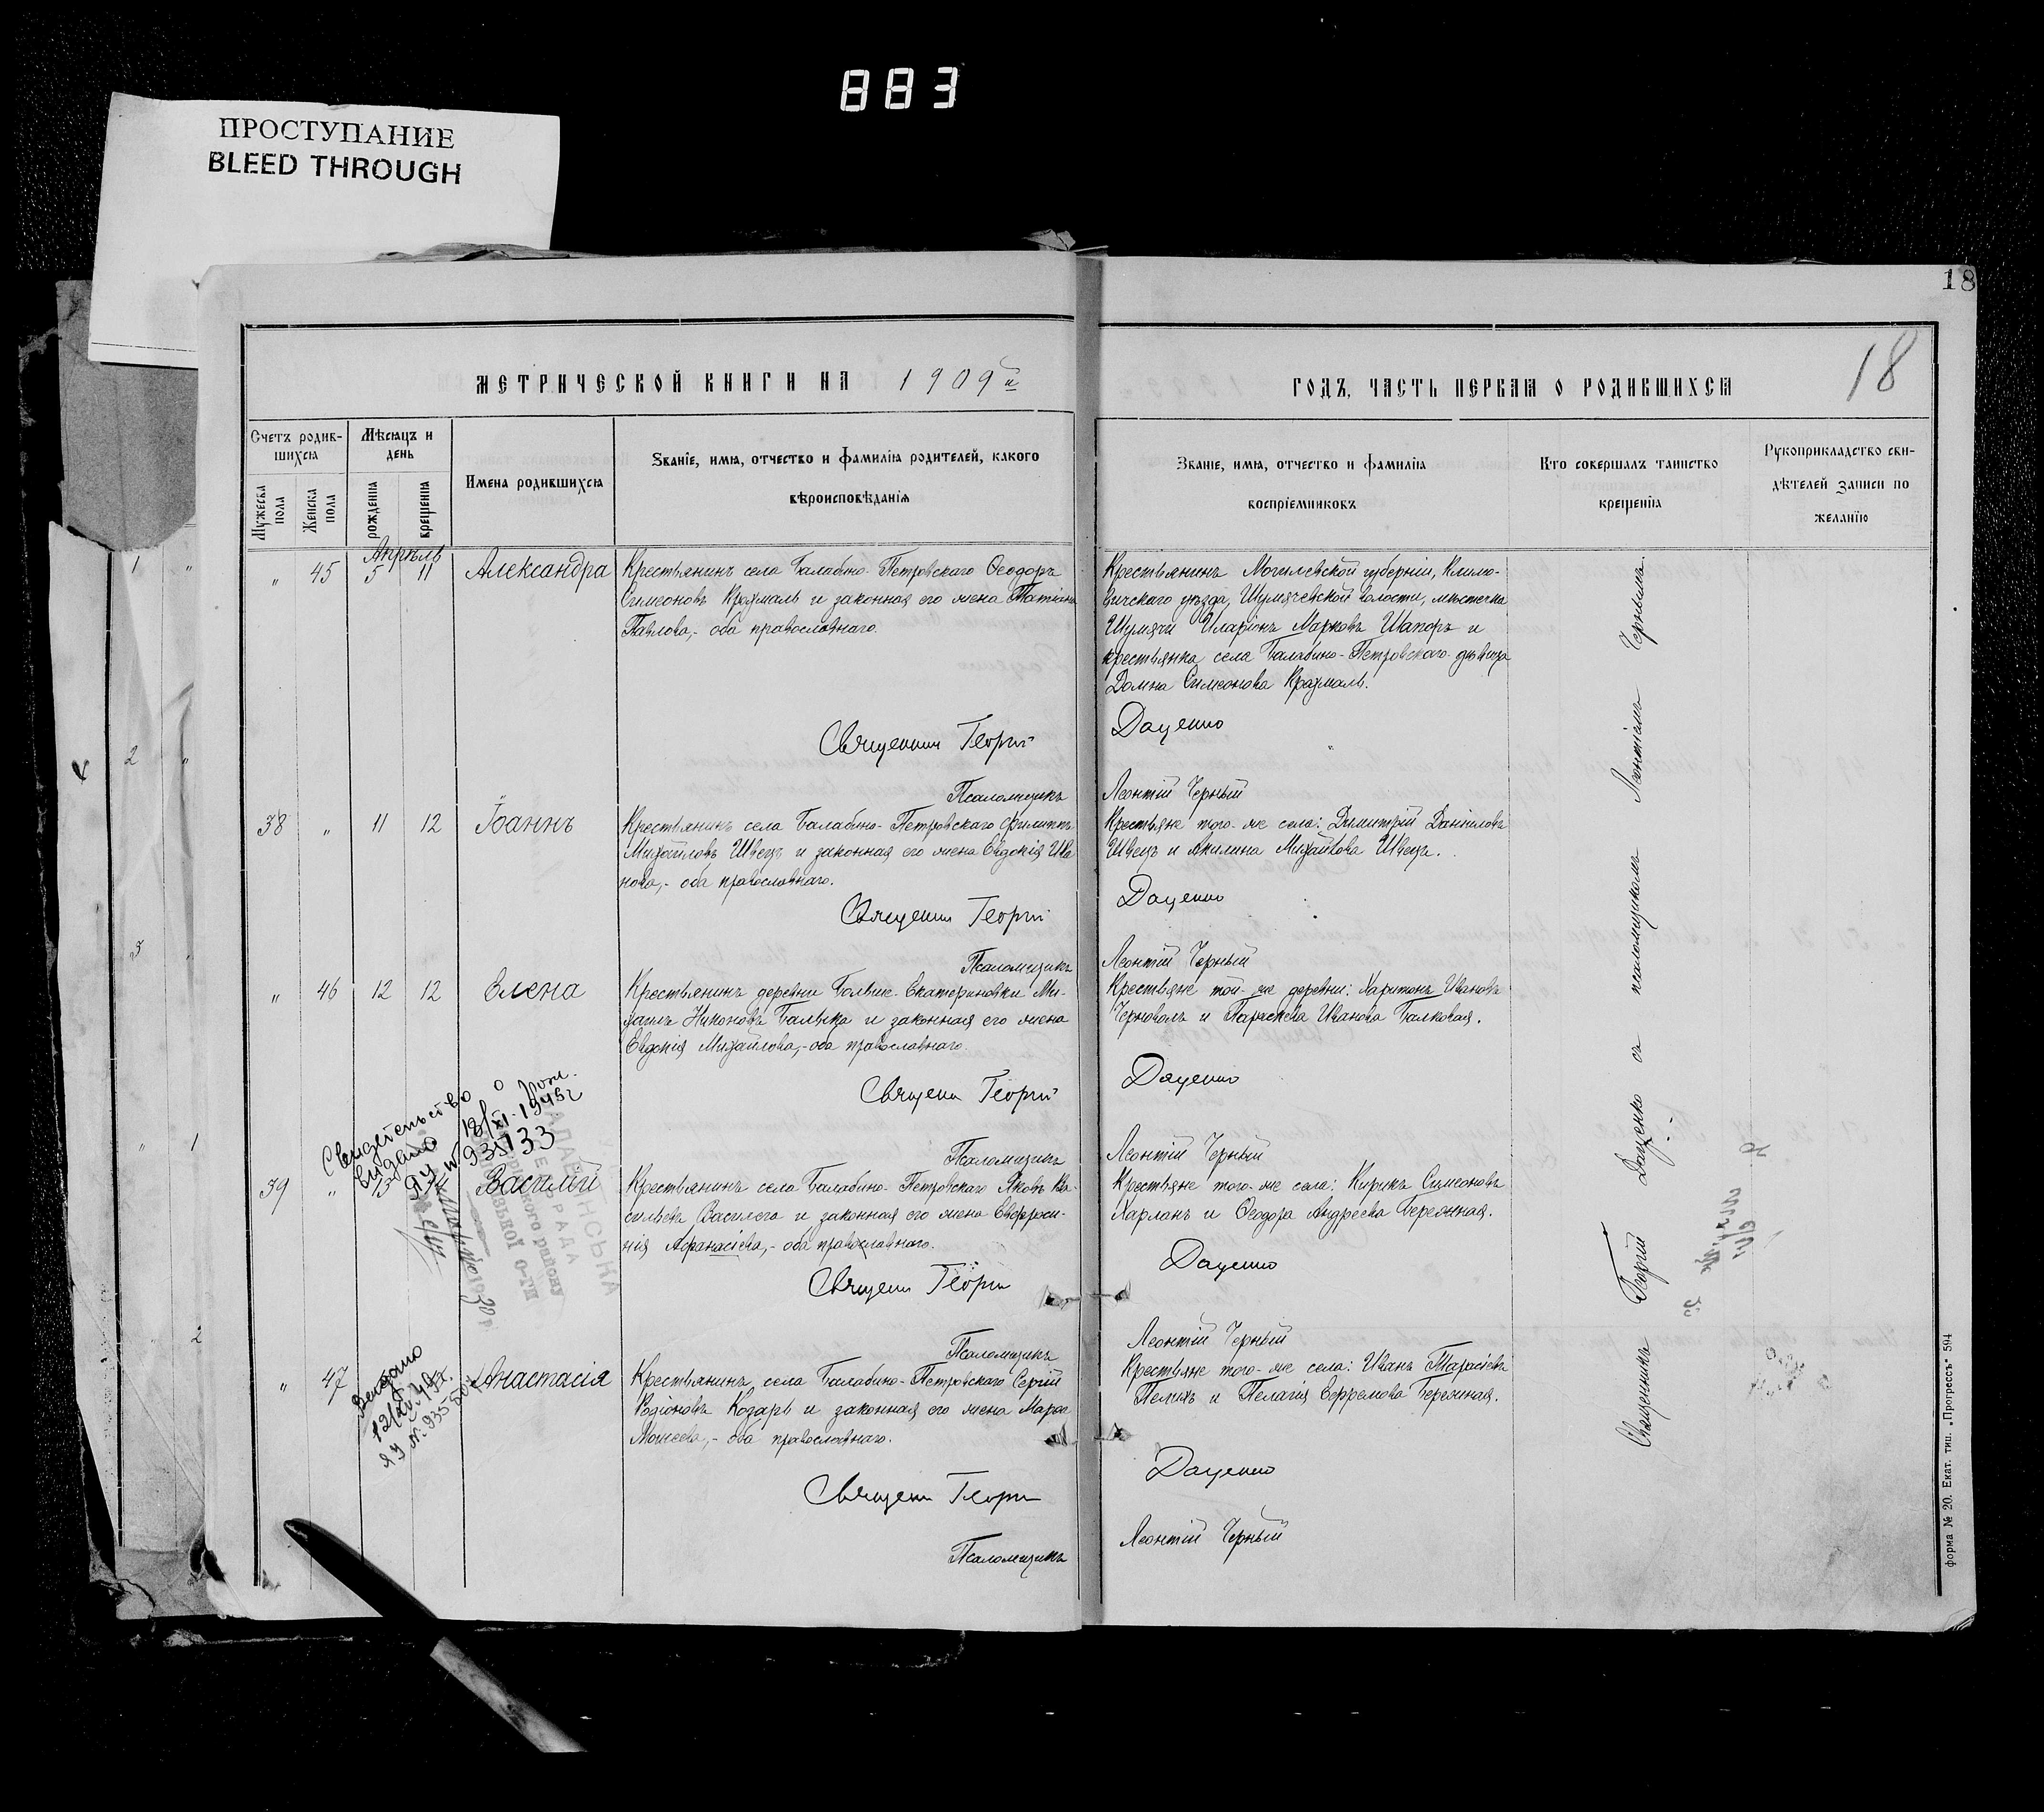 883
ПРОСТУПАНИЕ
BLEED THROUGH
18
18
МЕТРИЧЕСКОЙ КНИГИ НА 1909й
ГОДЪ, ЧАСТЬ ПЕРВАЯ О РОДИВШИХСЯ
Счетъ родив-
шихся
Мужеска
пола
Женска
пола
Мѣсяцъ и
день
рожденія
крещенія
Имена родившихся
Званіе, имя, отчество и фамилія родителей, какого
вѣроисповѣданія
Званіе, имя, отчество и фамилія
воспріемниковъ
Кто совершалъ таинство
крещенія
Рукоприкладство сви-
дѣтелей записи по
желанію
Апрѣль
" 45 5 11 Александра
Крестьянинъ села Балабино-Петровскаго Ѳеодоръ
Симеоновъ Крохмаль и законная его жена Татіана
Павлова,- оба православнаго.
Крестьянинъ Могилевской губерніи, Климо-
вичскаго уѣзда, Шумячевской волости, мѣстечка
Шумячи Иларіонъ Марковъ Шапоръ и
крестьянка села Балабино-Петровскаго дѣвица
Домна Симеонова Крохмаль.
Священникъ Георгій Даценко
Псаломщикъ Леонтій Черный
38 " 11 12 Іоаннъ
Крестьянинъ села Балабино-Петровскаго Филиппъ
Михайловъ Швецъ и законная его жена Евдокія Ива-
нова,- оба православнаго.
Крестьяне того-же села: Димитрій Даніиловъ
Швецъ и Акилина Михайлова Швецъ.
Священникъ Георгій Даценко
Псаломщикъ Леонтій Черный
" 46 12 12 Елена
Крестьянинъ деревни Больше-Екатериновки Ми-
хаилъ Никоновъ Балыка и законная его жена
Евдокія Михайлова,- оба православнаго.
Крестьяне той-же деревни: Харитонъ Ивановъ
Черноволъ и Параскева Иванова Балковая.
Священ Георгій Даценко
Псаломщикъ Леонтій Черный
Свидетельство о рож.
выдано 13/XI-1945г
ЯУ № 935133
39 " Василій
Крестьянинъ села Балабино-Петровскаго Яковъ Ва-
сильевъ Василега и законная его жена Евфроси-
нія Афанасіева,- оба православнаго.
Крестьяне того-же села: Кирикъ Симеоновъ
Харланъ и Ѳеодора Андреева Бережная.
Священ Георгій Даценко
Псаломщикъ Леонтій Черный
Выдано
" 47 Анастасія
Крестьянинъ села Балабино-Петровскаго Сергій
Родіоновъ Козарь и законная его жена Марѳа
Моисеева,- оба православнаго.
Крестьяне того-же села: Иванъ Тарасіевъ
Пелихъ и Пелагія Ефремова Бережная.
Священ Георгій Даценко
Псаломщикъ Леонтій Черный
Священникъ Георгій Даценко съ псаломщикомъ Леонтіемъ Чернымъ.
форма № 20. Екат. тип. „Прогрессъ“ 594